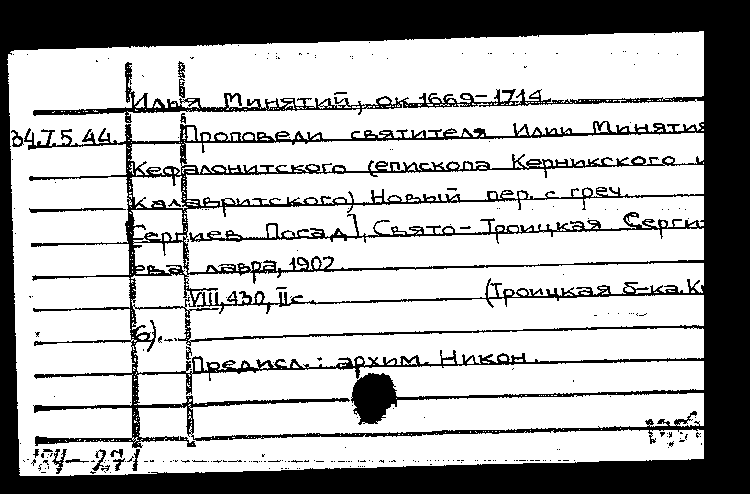 Илья Минятий, ок. 1669-1714.
34.7.5.44. Проповеди святителя Илии Минятия
Кефалонитского (епископа Керникского и
Калавритского). Новый пер. с греч.
[Сергиев Посад], Свято-Троицкая Серги-
ева лавра, 1902.
VIII, 430, II с. (Троицкая б-ка. Кн
6).
Предисл.: архим. Никон.
184-271